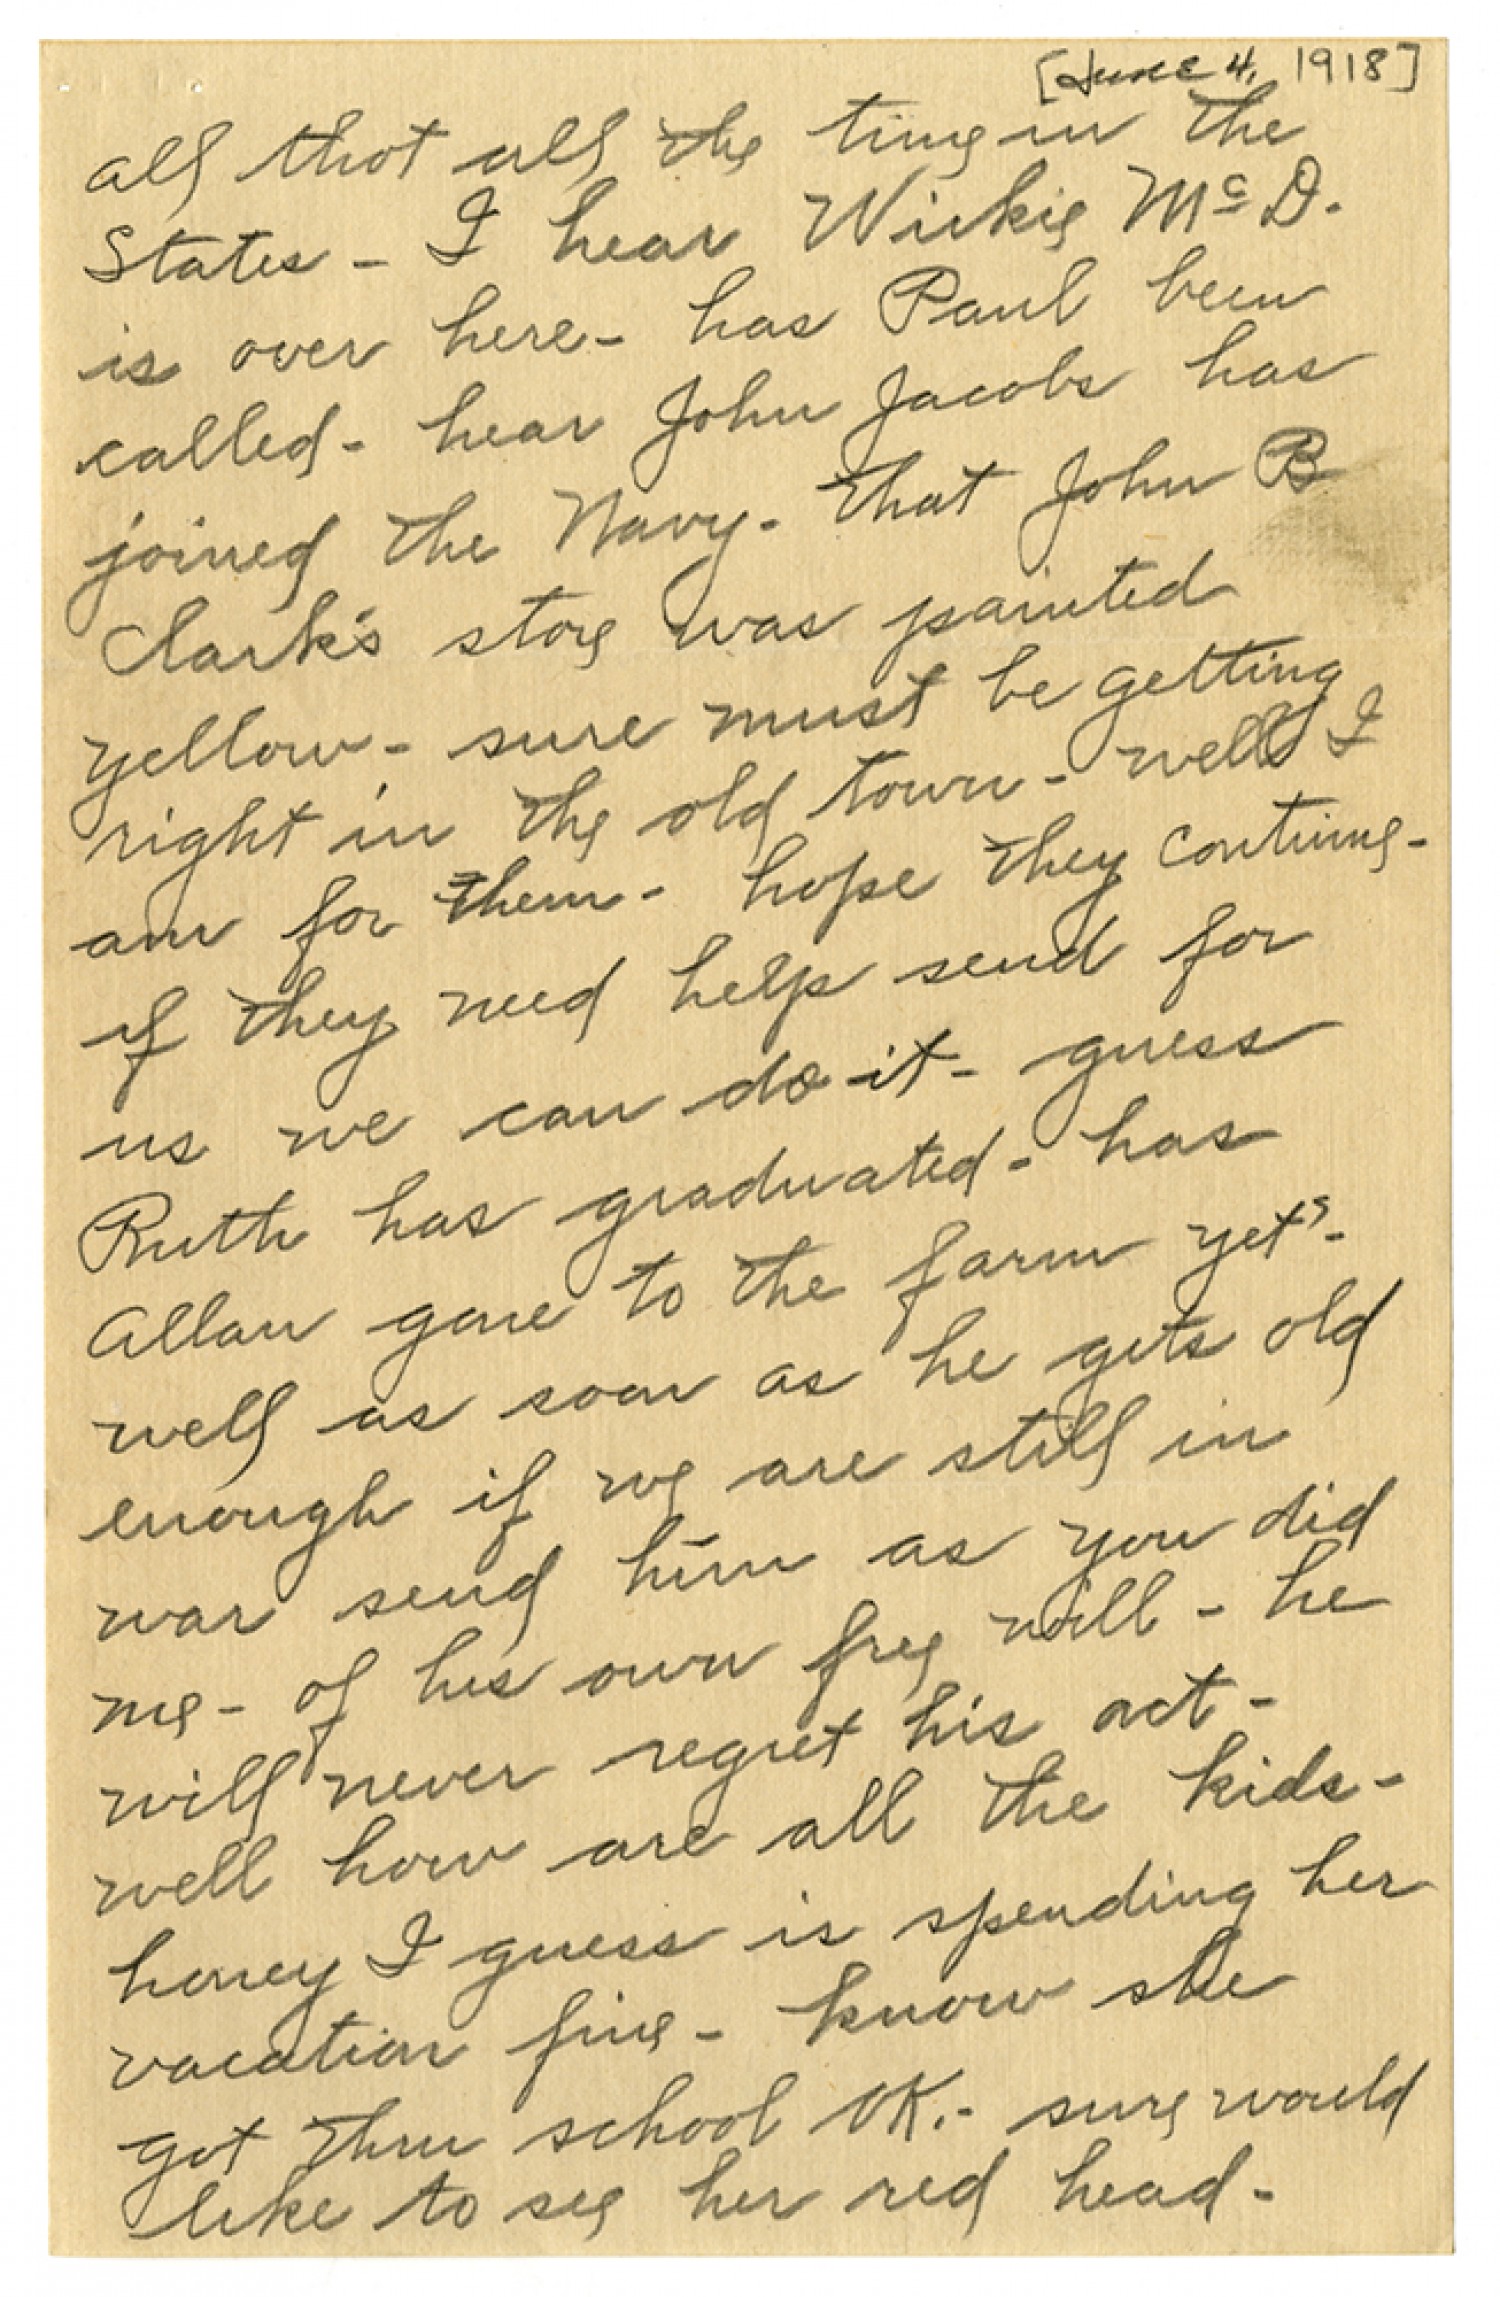 [June 4, 1918]
all that all the time in the
States - I hear Wickie McD.
is over here - has Paul been
called - hear John Jacobs has
joined the Navy - that John B
Clark's store was painted
yellow - sure must be getting
right in the old town - well I
am for them - hope they continue -
if they need help send for
us we can do it - guess
Ruth has graduated - has
Allan gone to the farm yet? -
well as soon as he gets old
enough if we are still in
war send him as you did
me - of his own free will - he
will never regret his act -
well how are all the kids -
honey I guess is spending her
vacation fine - know she
got thru school OK. - sure would
like to see her red head -